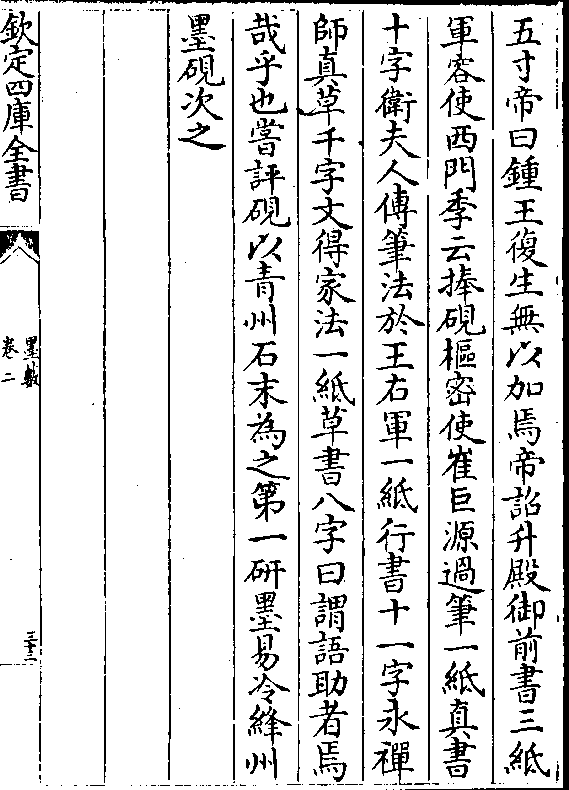 五寸帝曰鍾王復生無以加焉帝詔升殿御前書三紙
軍容使西門季云捧硯樞密使崔巨源過筆一紙真書
十字衛夫人傳筆法於王右軍一紙行書十一字永禪
師真草千字文得家法一紙草書八字曰謂語助者焉
哉乎也嘗評硯以青州石末為之第一研墨易冷絳州
墨硯次之
欽定四庫全書
墨藪
卷二
三十二